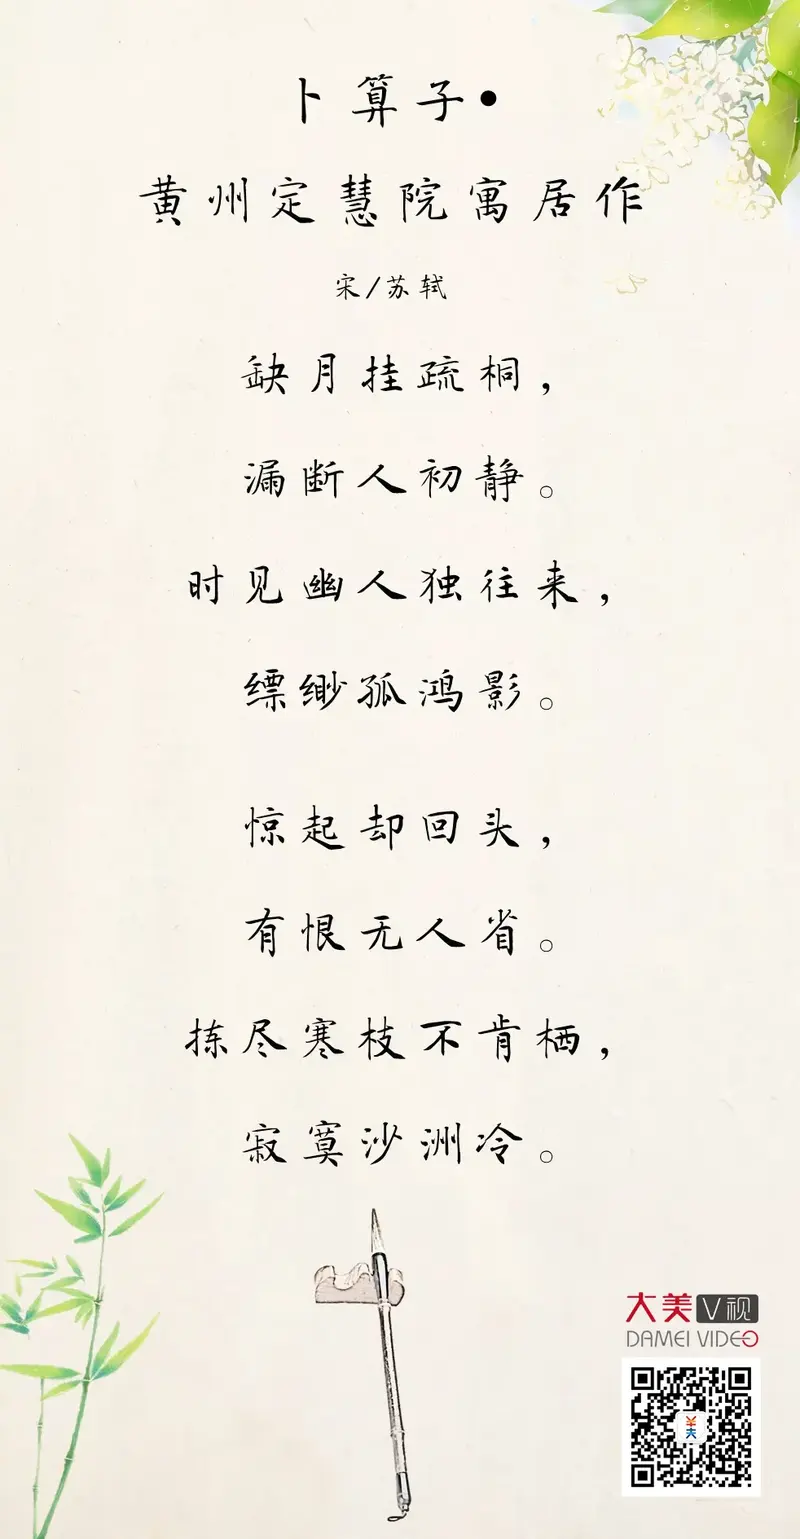 卜算子•
黄州定慧院寓居作
宋/苏轼
缺月挂疏桐，
漏断人初静。
时见幽人独往来，
缥缈孤鸿影。
惊起却回头，
有恨无人省。
拣尽寒枝不肯栖，
寂寞沙洲冷。
大美V视
DAMEI VIDEO